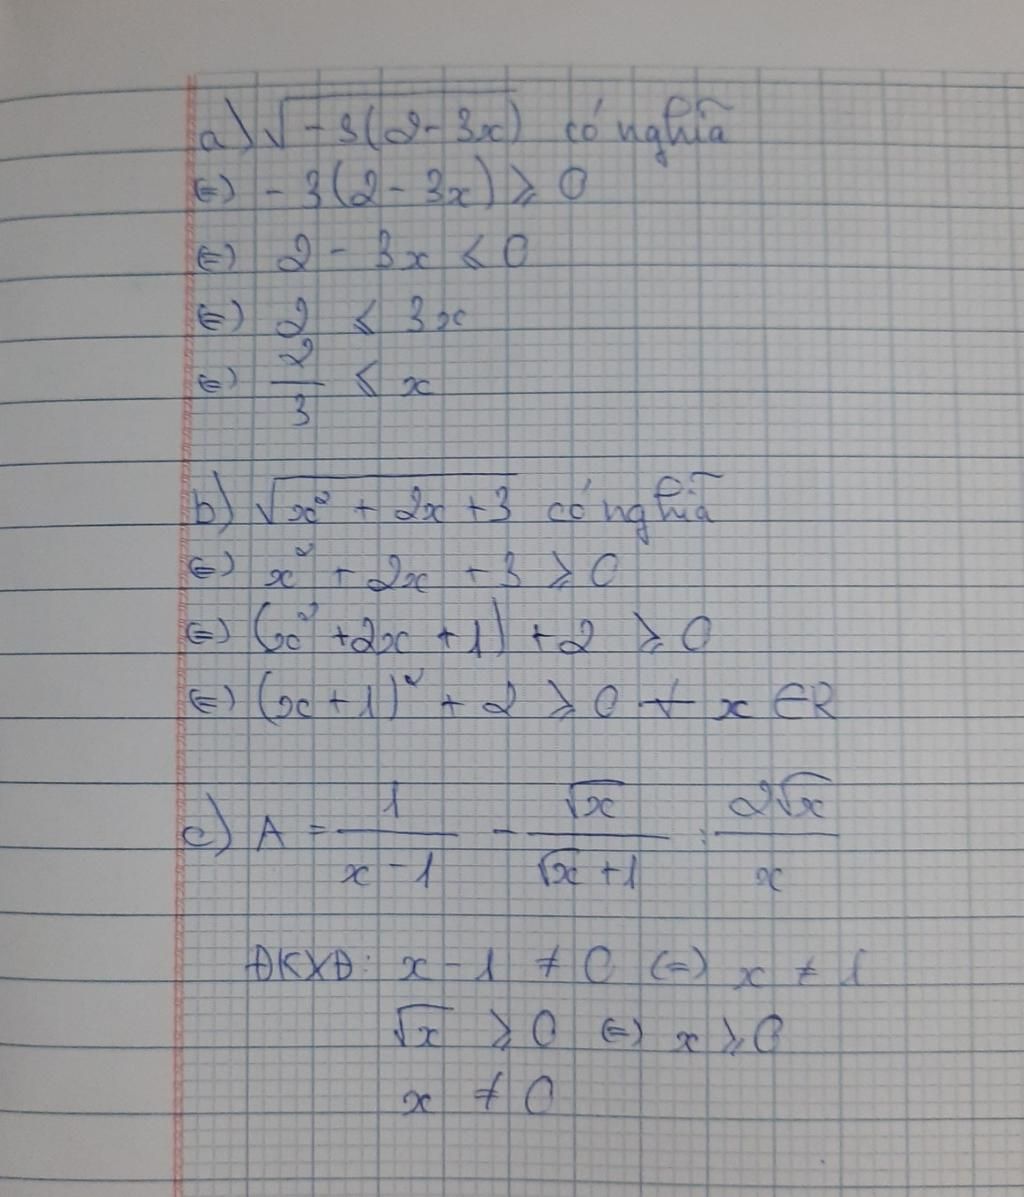 a) √-3(2-3x) có nghĩa
⇔ -3(2-3x) ⩾ 0
⇔ 2 - 3x ⩽ 0
⇔ 2 ⩽ 3x
⇔ 2/3 ⩽ x
b) √x² + 2x + 3 có nghĩa
⇔ x² + 2x + 3 ⩾ 0
⇔ (x² + 2x + 1) + 2 ⩾ 0
⇔ (x + 1)² + 2 ⩾ 0 ∀ x ∈ R
c) A = 1/(x - 1) - √x/(√x + 1) : 2√x/x
ĐKXĐ: x - 1 ≠ 0 ⇔ x ≠ 1
√x ⩾ 0 ⇔ x ⩾ 0
x ≠ 0